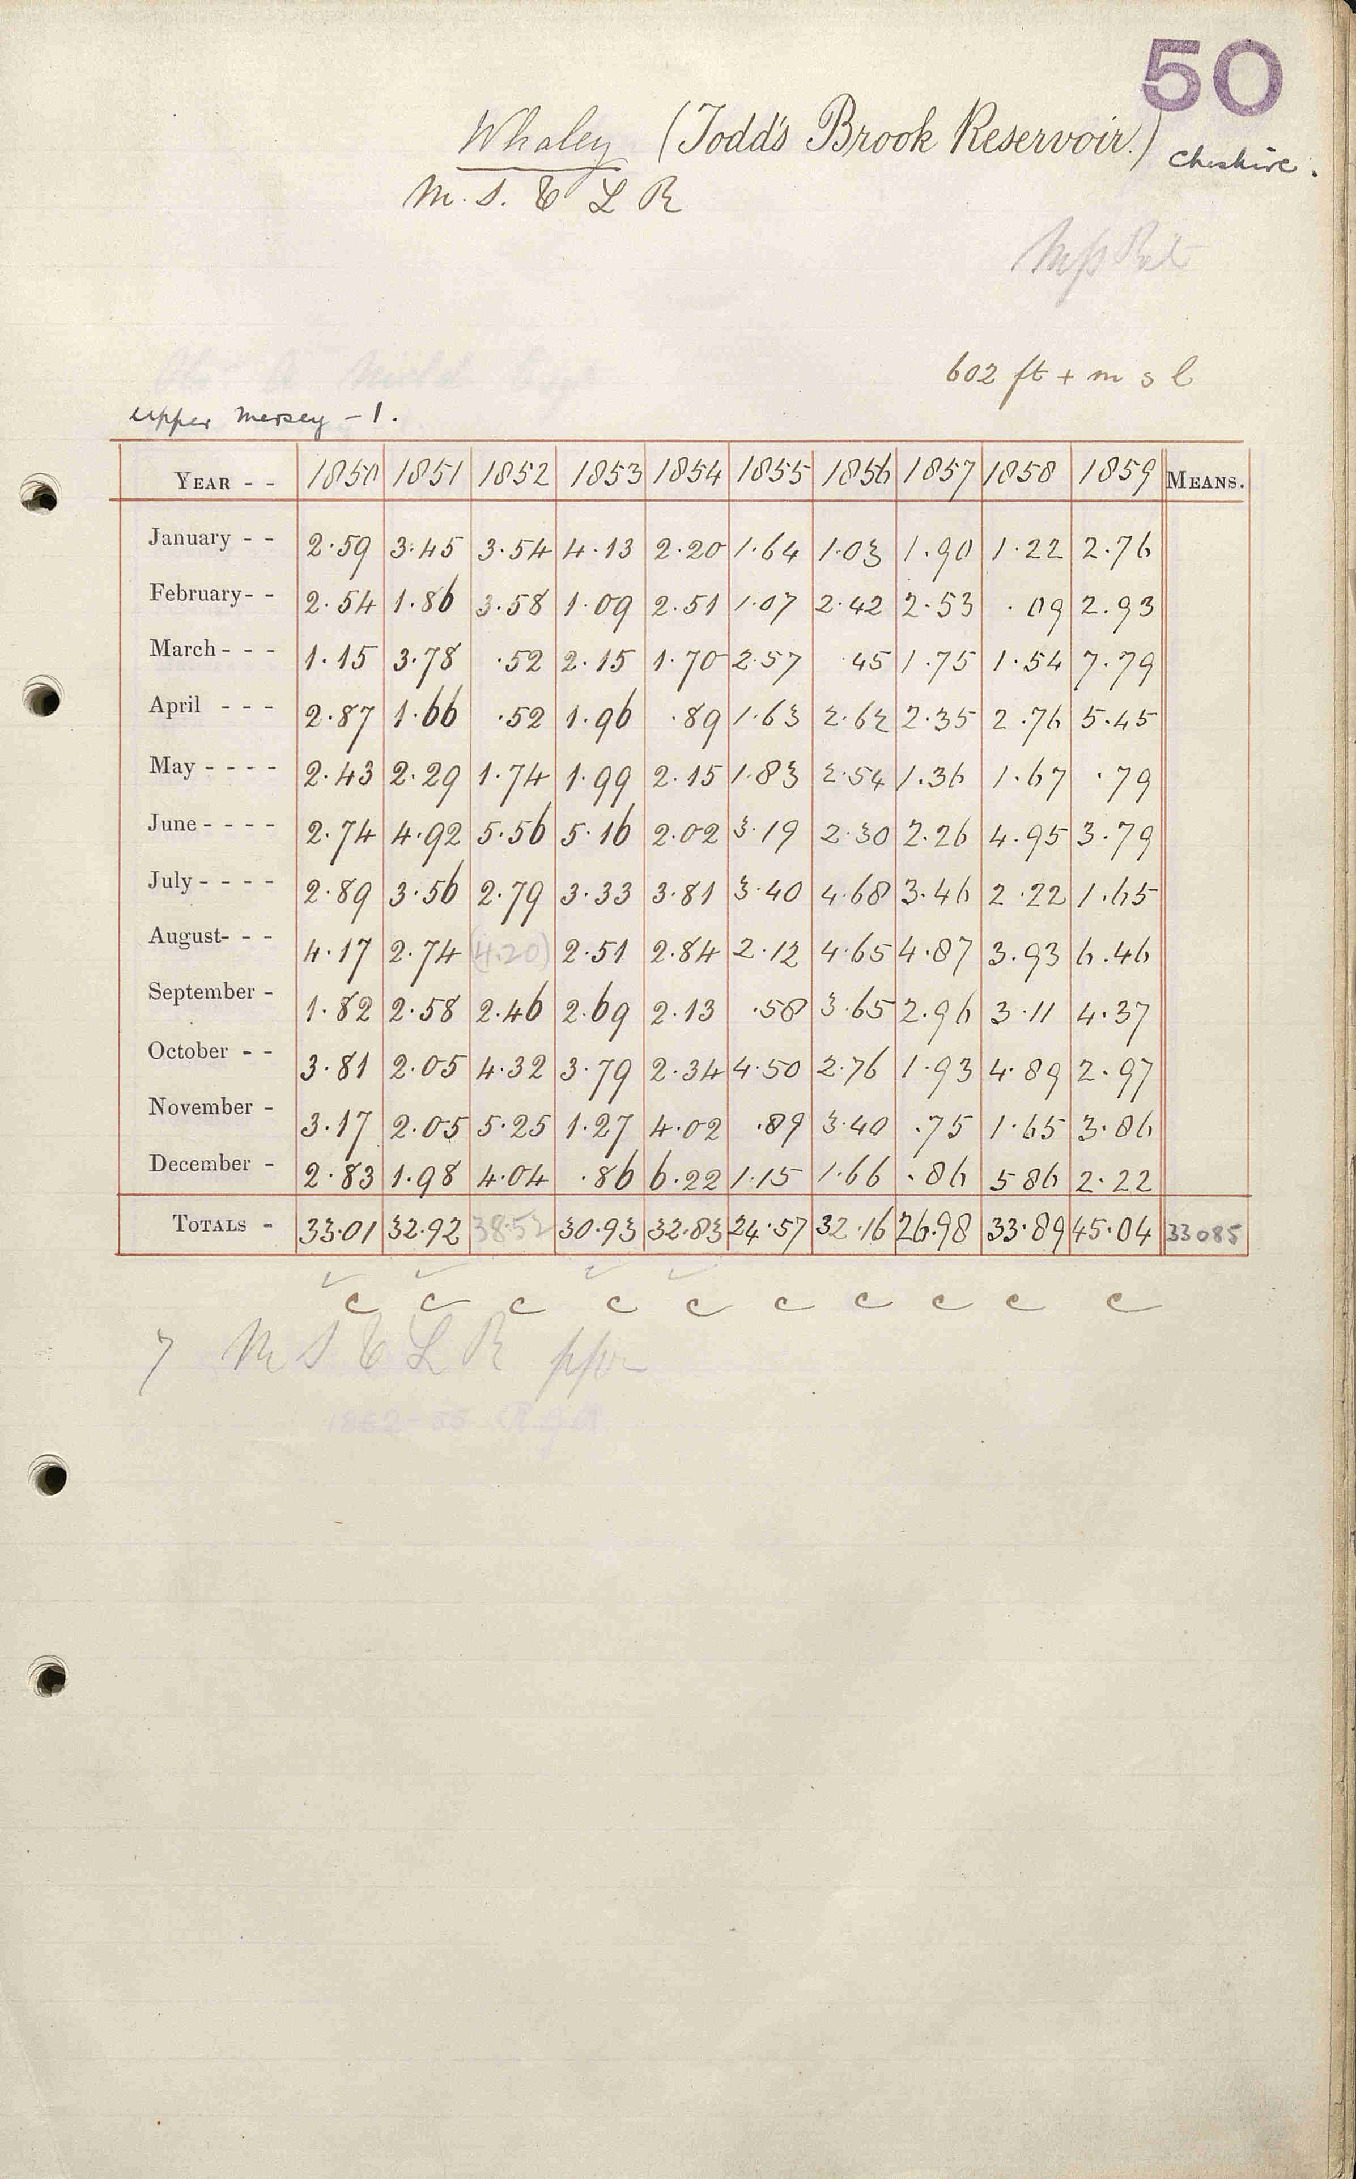 50
Whaley (Todd's Brook Reservoir.) Cheshire.
M. S. & L R
602 ft + m s l
Upper Mersey - 1.
YEAR - - 1850 1851 1852 1853 1854 1855 1856 1857 1858 1859 MEANS.
January - - 2.59 3.45 3.54 4.13 2.20 1.64 1.03 1.90 1.22 2.76
February - - 2.54 1.86 3.58 1.09 2.51 1.07 2.42 2.53 .09 2.93
March - - - 1.15 3.78 .52 2.15 1.70 2.57 .45 1.75 1.54 7.79
April - - - 2.87 1.66 .52 1.96 .89 1.63 2.62 2.35 2.76 5.45
May - - - - 2.43 2.29 1.74 1.99 2.15 1.83 2.54 1.36 1.67 .79
June - - - - 2.74 4.92 5.56 5.16 2.02 3.19 2.30 2.26 4.95 3.79
July - - - - 2.89 3.56 2.79 3.33 3.81 3.40 4.68 3.46 2.22 1.65
August - - - 4.17 2.74 (4.20) 2.51 2.84 2.12 4.65 4.87 3.93 6.46
September - 1.82 2.58 2.46 2.69 2.13 .58 3.65 2.96 3.11 4.37
October - - 3.81 2.05 4.32 3.79 2.34 4.50 2.76 1.93 4.89 2.97
November - 3.17 2.05 5.25 1.27 4.02 .89 3.40 .75 1.65 3.86
December - 2.83 1.98 4.04 .86 6.22 1.15 1.66 .86 5 86 2.22
TOTALS - 33.01 32.92 38.52 30.93 32.83 24.57 32.16 26.98 33.89 45.04 33 085
c c c c c c c c c c
7 M S & L R